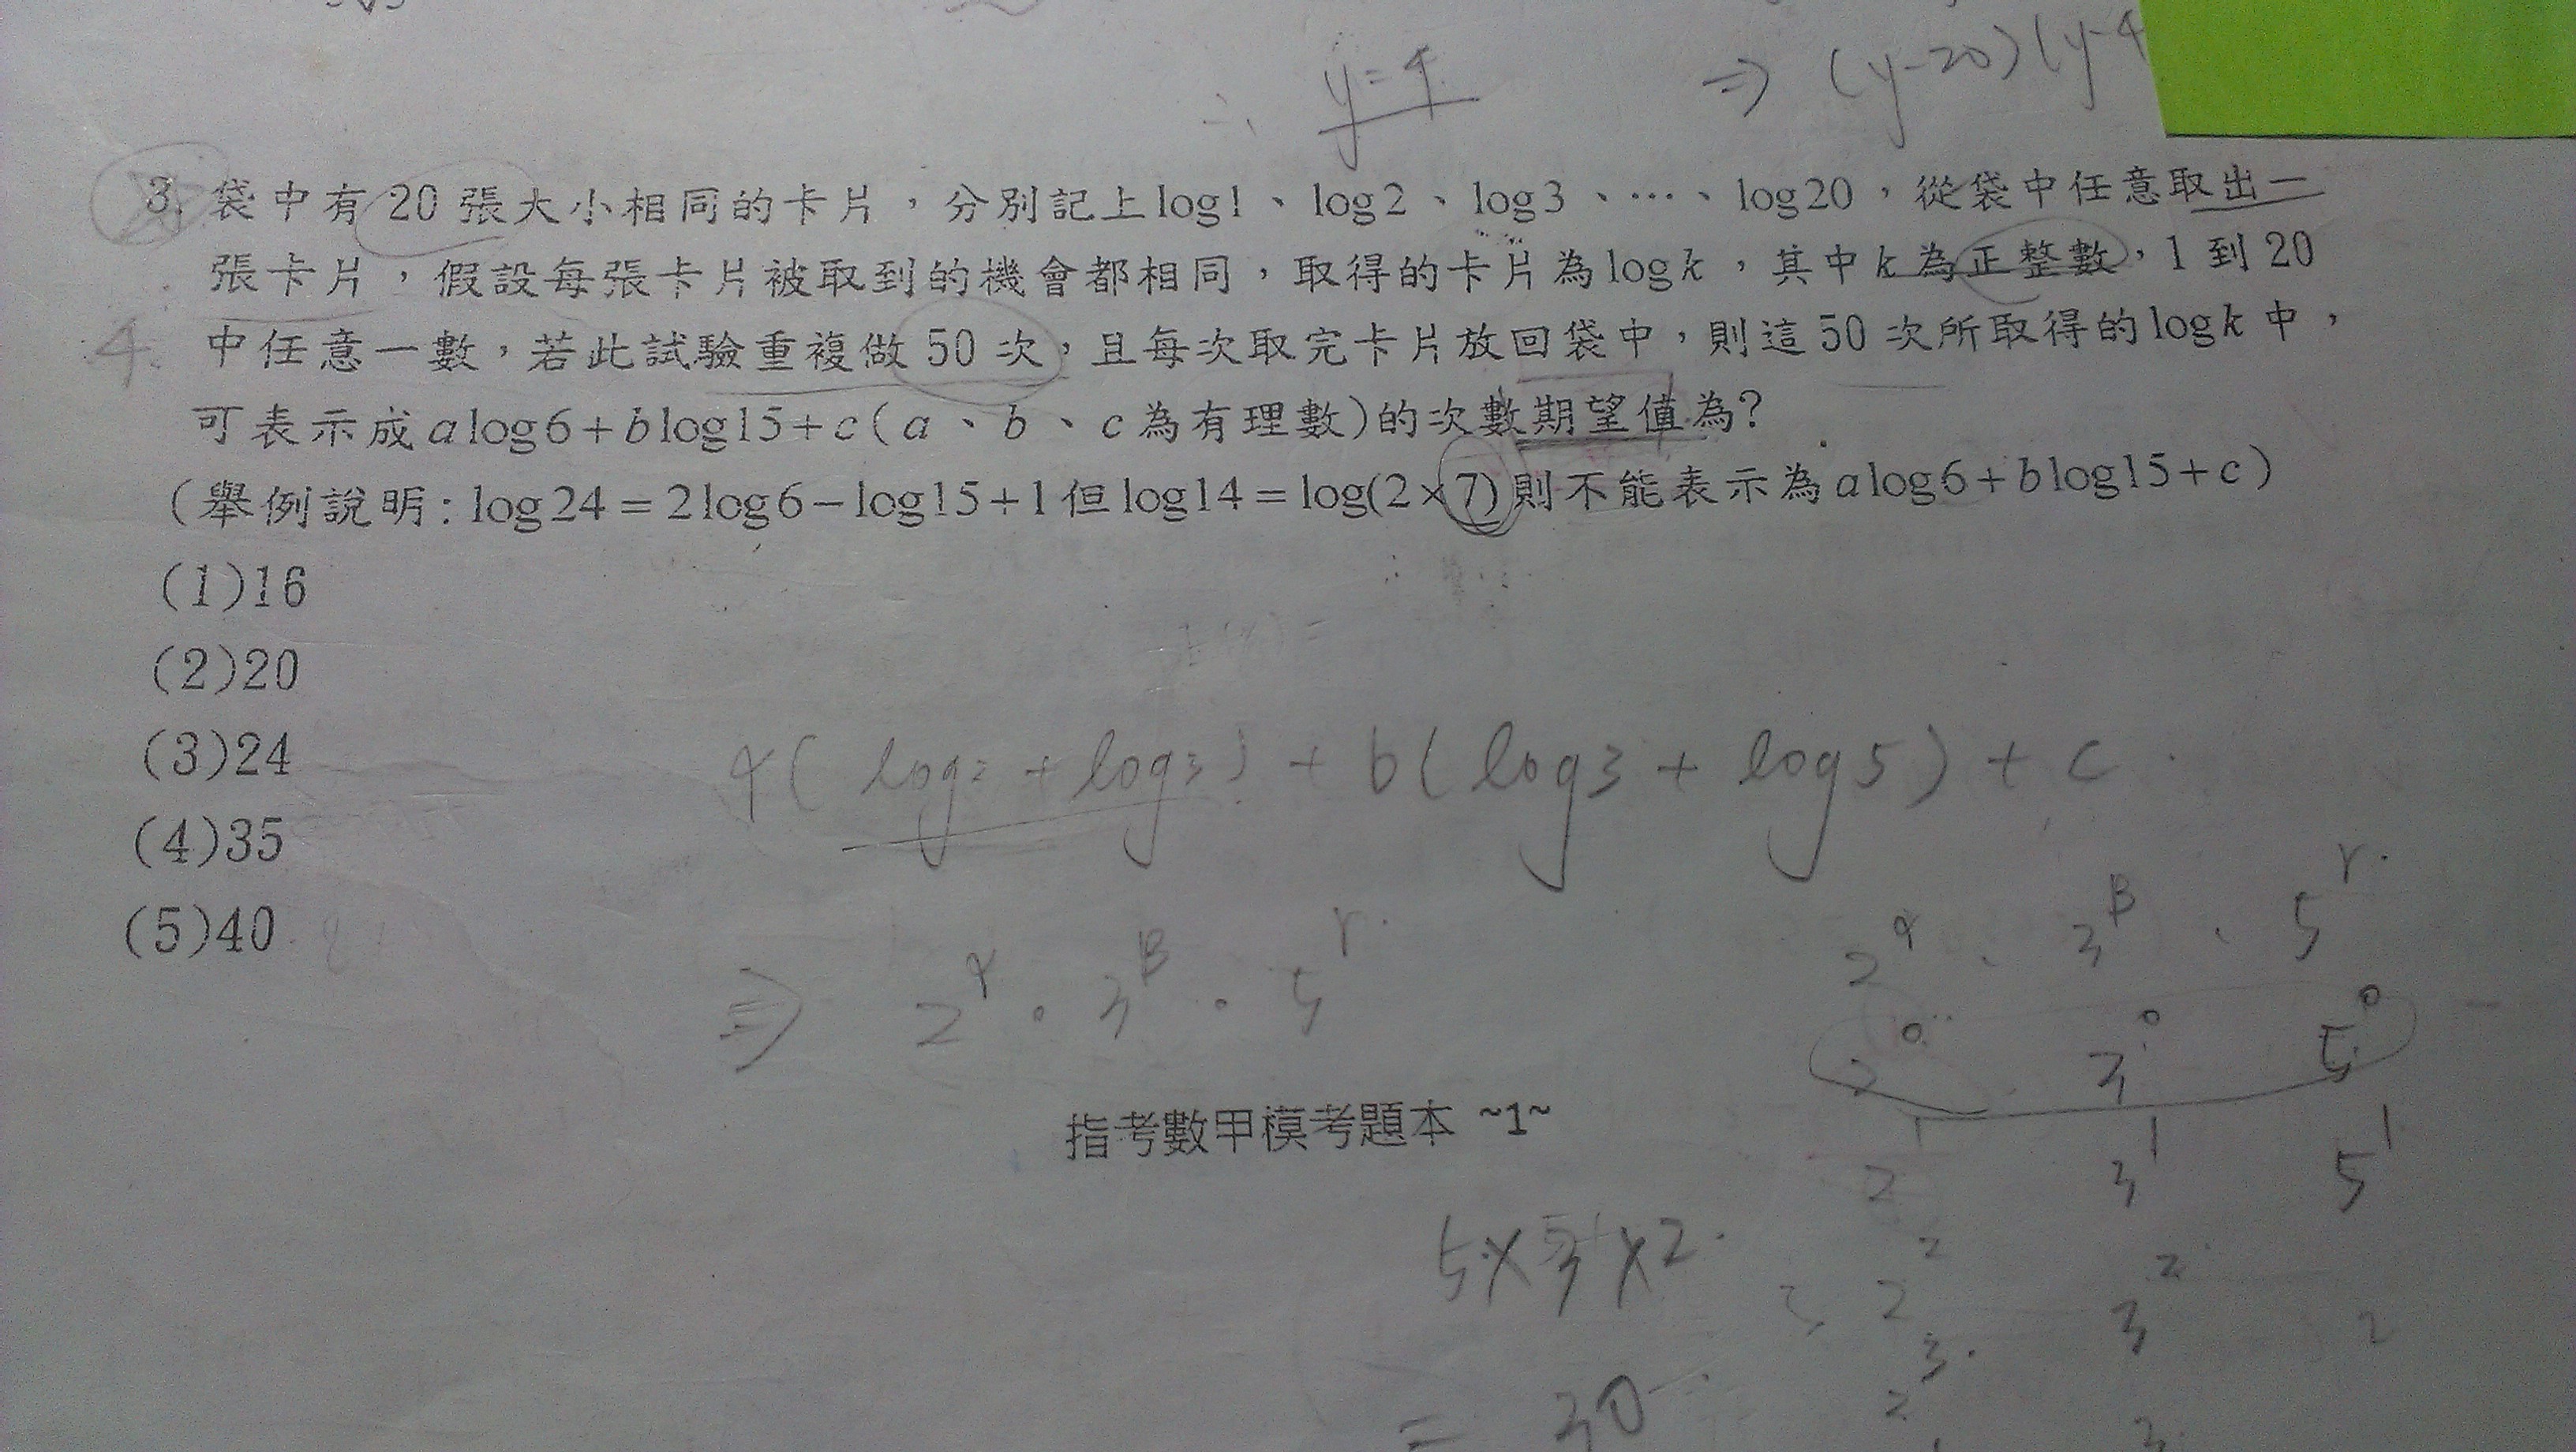 ∴ y=4 ⇒ (y-20)(y-4
3. 袋中有20張大小相同的卡片，分別記上log1、log2、log3、…、log20，從袋中任意取出一
張卡片，假設每張卡片被取到的機會都相同，取得的卡片為logk，其中k為正整數，1到20
4. 中任意一數，若此試驗重複做50次，且每次取完卡片放回袋中，則這50次所取得的logk中，
可表示成alog6+blog15+c(a、b、c為有理數)的次數期望值為?
(舉例說明:log24=2log6-log15+1但log14=log(2×7)則不能表示為alog6+blog15+c)
(1)16
(2)20
(3)24
(4)35
(5)40
(log2 + log3) + b(log3 + log5) + c
2^α · 3^β · 5^r
⇒ 2^α · 3^β · 5^r
2^0 3^0 5^0
指考數甲模考題本 ~1~
2^1 3^1 5^1
2^2 3^2 2
2^3 3
= 30